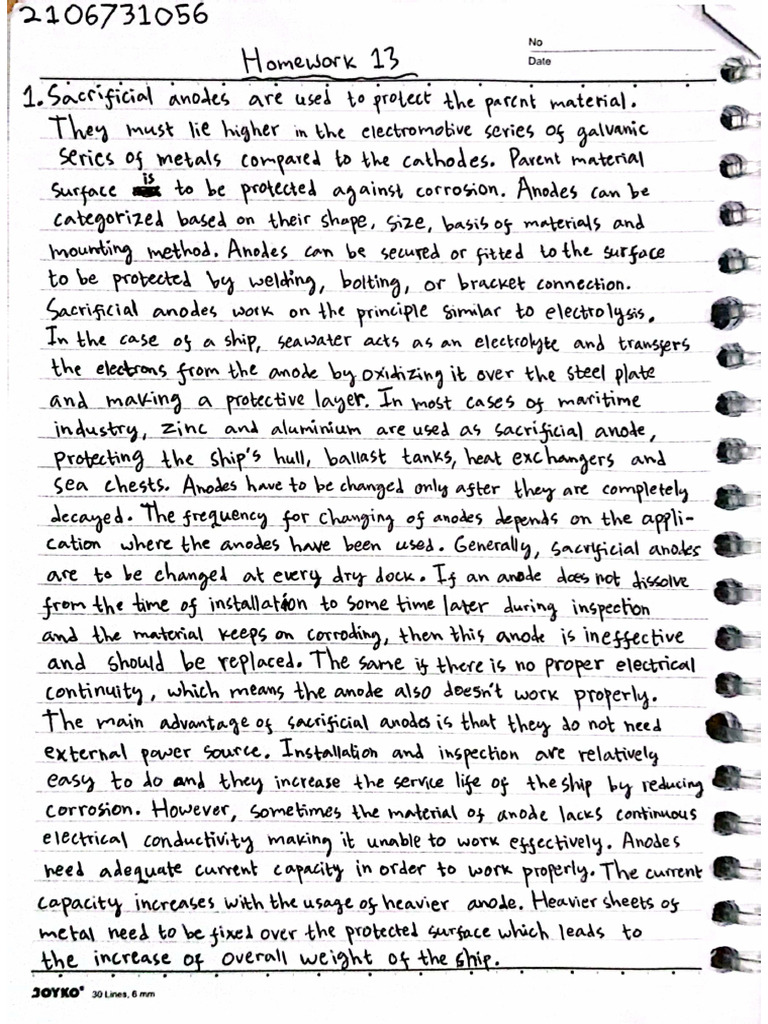 2106731056
No
Homework 13
Date
1. Sacrificial anodes are used to protect the parent material.
They must lie higher in the electromotive series of galvanic
series of metals compared to the cathodes. Parent material
surface is to be protected against corrosion. Anodes can be
categorized based on their shape, size, basis of materials and
mounting method. Anodes can be secured or fitted to the surface
to be protected by welding, bolting, or bracket connection.
Sacrificial anodes work on the principle similar to electrolysis.
In the case of a ship, seawater acts as an electrolyte and transfers
the electrons from the anode by oxidizing it over the steel plate
and making a protective layer. In most cases of maritime
industry, zinc and aluminium are used as sacrificial anode,
protecting the ship's hull, ballast tanks, heat exchangers and
sea chests. Anodes have to be changed only after they are completely
decayed. The frequency for changing of anodes depends on the appli-
cation where the anodes have been used. Generally, sacrificial anodes
are to be changed at every dry dock. If an anode does not dissolve
from the time of installation to some time later during inspection
and the material keeps on corroding, then this anode is ineffective
and should be replaced. The same if there is no proper electrical
continuity, which means the anode also doesn't work properly.
The main advantage of sacrificial anodes is that they do not need
external power source. Installation and inspection are relatively
easy to do and they increase the service life of the ship by reducing
corrosion. However, sometimes the material of anode lacks continuous
electrical conductivity making it unable to work effectively. Anodes
need adequate current capacity in order to work properly. The current
capacity increases with the usage of heavier anode. Heavier sheets of
metal need to be fixed over the protected surface which leads to
the increase of overall weight of the ship.
JOYKO® 30 Lines, 6 mm